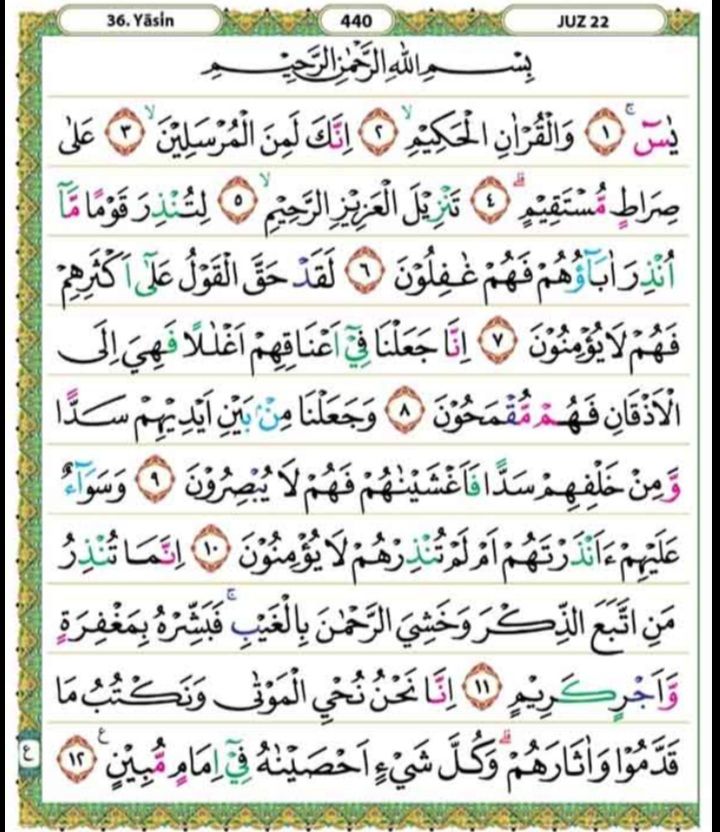 36. Yāsin 440 JUZ 22
بِسْمِ اللّٰهِ الرَّحْمٰنِ الرَّحِيْمِ
يٰسۤ ۚ ﴿١﴾ وَالْقُرْاٰنِ الْحَكِيْمِۙ ﴿٢﴾ اِنَّكَ لَمِنَ الْمُرْسَلِيْنَۙ ﴿٣﴾ عَلٰى
صِرَاطٍ مُّسْتَقِيْمٍۗ ﴿٤﴾ تَنْزِيْلَ الْعَزِيْزِ الرَّحِيْمِۙ ﴿٥﴾ لِتُنْذِرَ قَوْمًا مَّآ
اُنْذِرَ اٰبَاۤؤُهُمْ فَهُمْ غٰفِلُوْنَ ﴿٦﴾ لَقَدْ حَقَّ الْقَوْلُ عَلٰٓى اَكْثَرِهِمْ
فَهُمْ لَا يُؤْمِنُوْنَ ﴿٧﴾ اِنَّا جَعَلْنَا فِيْٓ اَعْنَاقِهِمْ اَغْلٰلًا فَهِيَ اِلَى
الْاَذْقَانِ فَهُمْ مُّقْمَحُوْنَ ﴿٨﴾ وَجَعَلْنَا مِنْۢ بَيْنِ اَيْدِيْهِمْ سَدًّا
وَّمِنْ خَلْفِهِمْ سَدًّا فَاَغْشَيْنٰهُمْ فَهُمْ لَا يُبْصِرُوْنَ ﴿٩﴾ وَسَوَاۤءٌ
عَلَيْهِمْ ءَاَنْذَرْتَهُمْ اَمْ لَمْ تُنْذِرْهُمْ لَا يُؤْمِنُوْنَ ﴿١٠﴾ اِنَّمَا تُنْذِرُ
مَنِ اتَّبَعَ الذِّكْرَ وَخَشِيَ الرَّحْمٰنَ بِالْغَيْبِۚ فَبَشِّرْهُ بِمَغْفِرَةٍ
وَّاَجْرٍ كَرِيْمٍ ﴿١١﴾ اِنَّا نَحْنُ نُحْيِ الْمَوْتٰى وَنَكْتُبُ مَا
قَدَّمُوْا وَاٰثَارَهُمْۗ وَكُلَّ شَيْءٍ اَحْصَيْنٰهُ فِيْٓ اِمَامٍ مُّبِيْنٍ ࣖ ﴿١٢﴾
ع